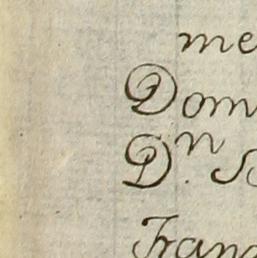 me
Dom
Dn. S
Fran